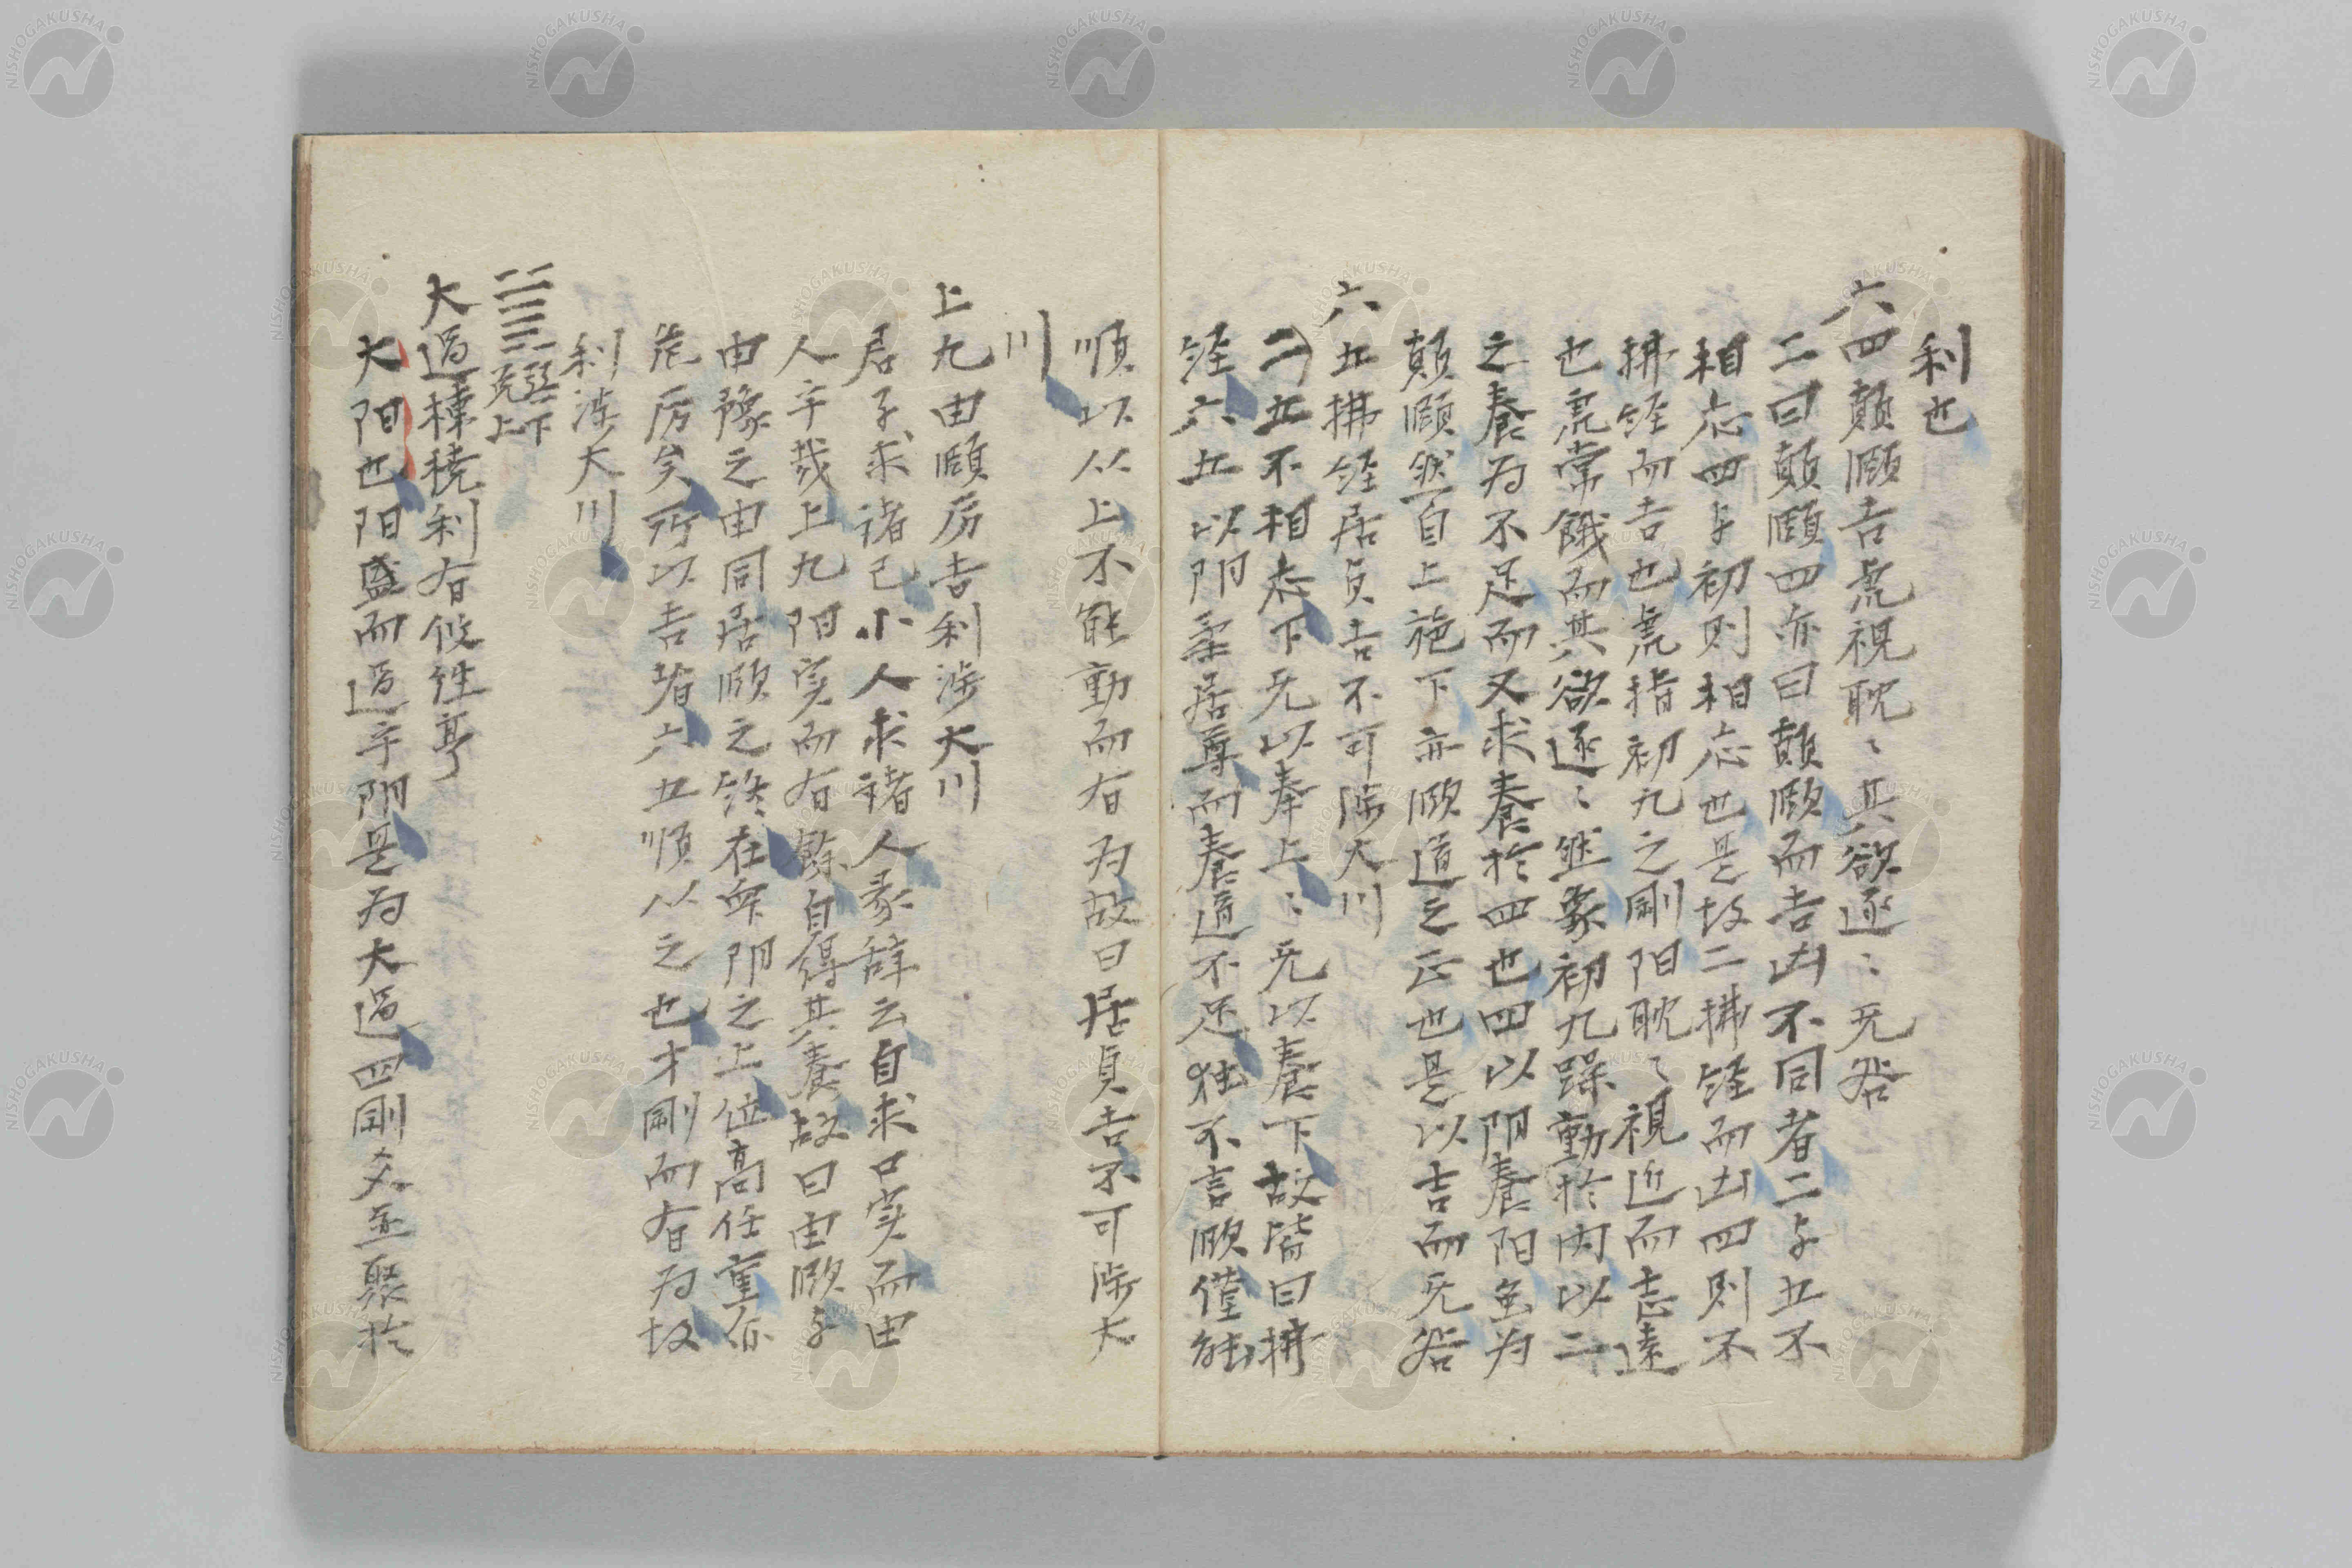 利也
六四顛頤吉虎視耽〻其欲逐〻无咎
二曰顛頤四亦曰顛頤而吉凶不同者二与五不
相応四与初則相応也是故二拂經而凶四則不
拂經而吉也虎指初九之剛陽耽〻視近而志遠
也虎常餓而其欲逐〻然象初九躁動於内以二
之養為不足而又求養於四也四以阴養阳宜为
顛頤然自上施下亦頤道之正也是以吉而无咎
六五拂經居貞吉不可涉大川
二五不相応下无以奉上〻无以養下故皆曰拂
經六五以阴柔居尊而養道不足独不言頤僅能
順以从上不能動而有为故曰居貞吉不可涉大
川
上九由頤厉吉利涉大川
君子求诸己小人求诸人彖辞云自求口实而由
人乎哉上九阳实而有餘自得其養故曰由頤与
由豫之由同居頤之终在群阴之上位高任重亦
危厉矣所以吉者六五順从之也才剛而有为故
利涉大川
巽下
兑上
大過棟橈利有攸往亨
大阳也阳盛而過乎阴是为大過四剛爻並聚於
NISHOGAKUSHA